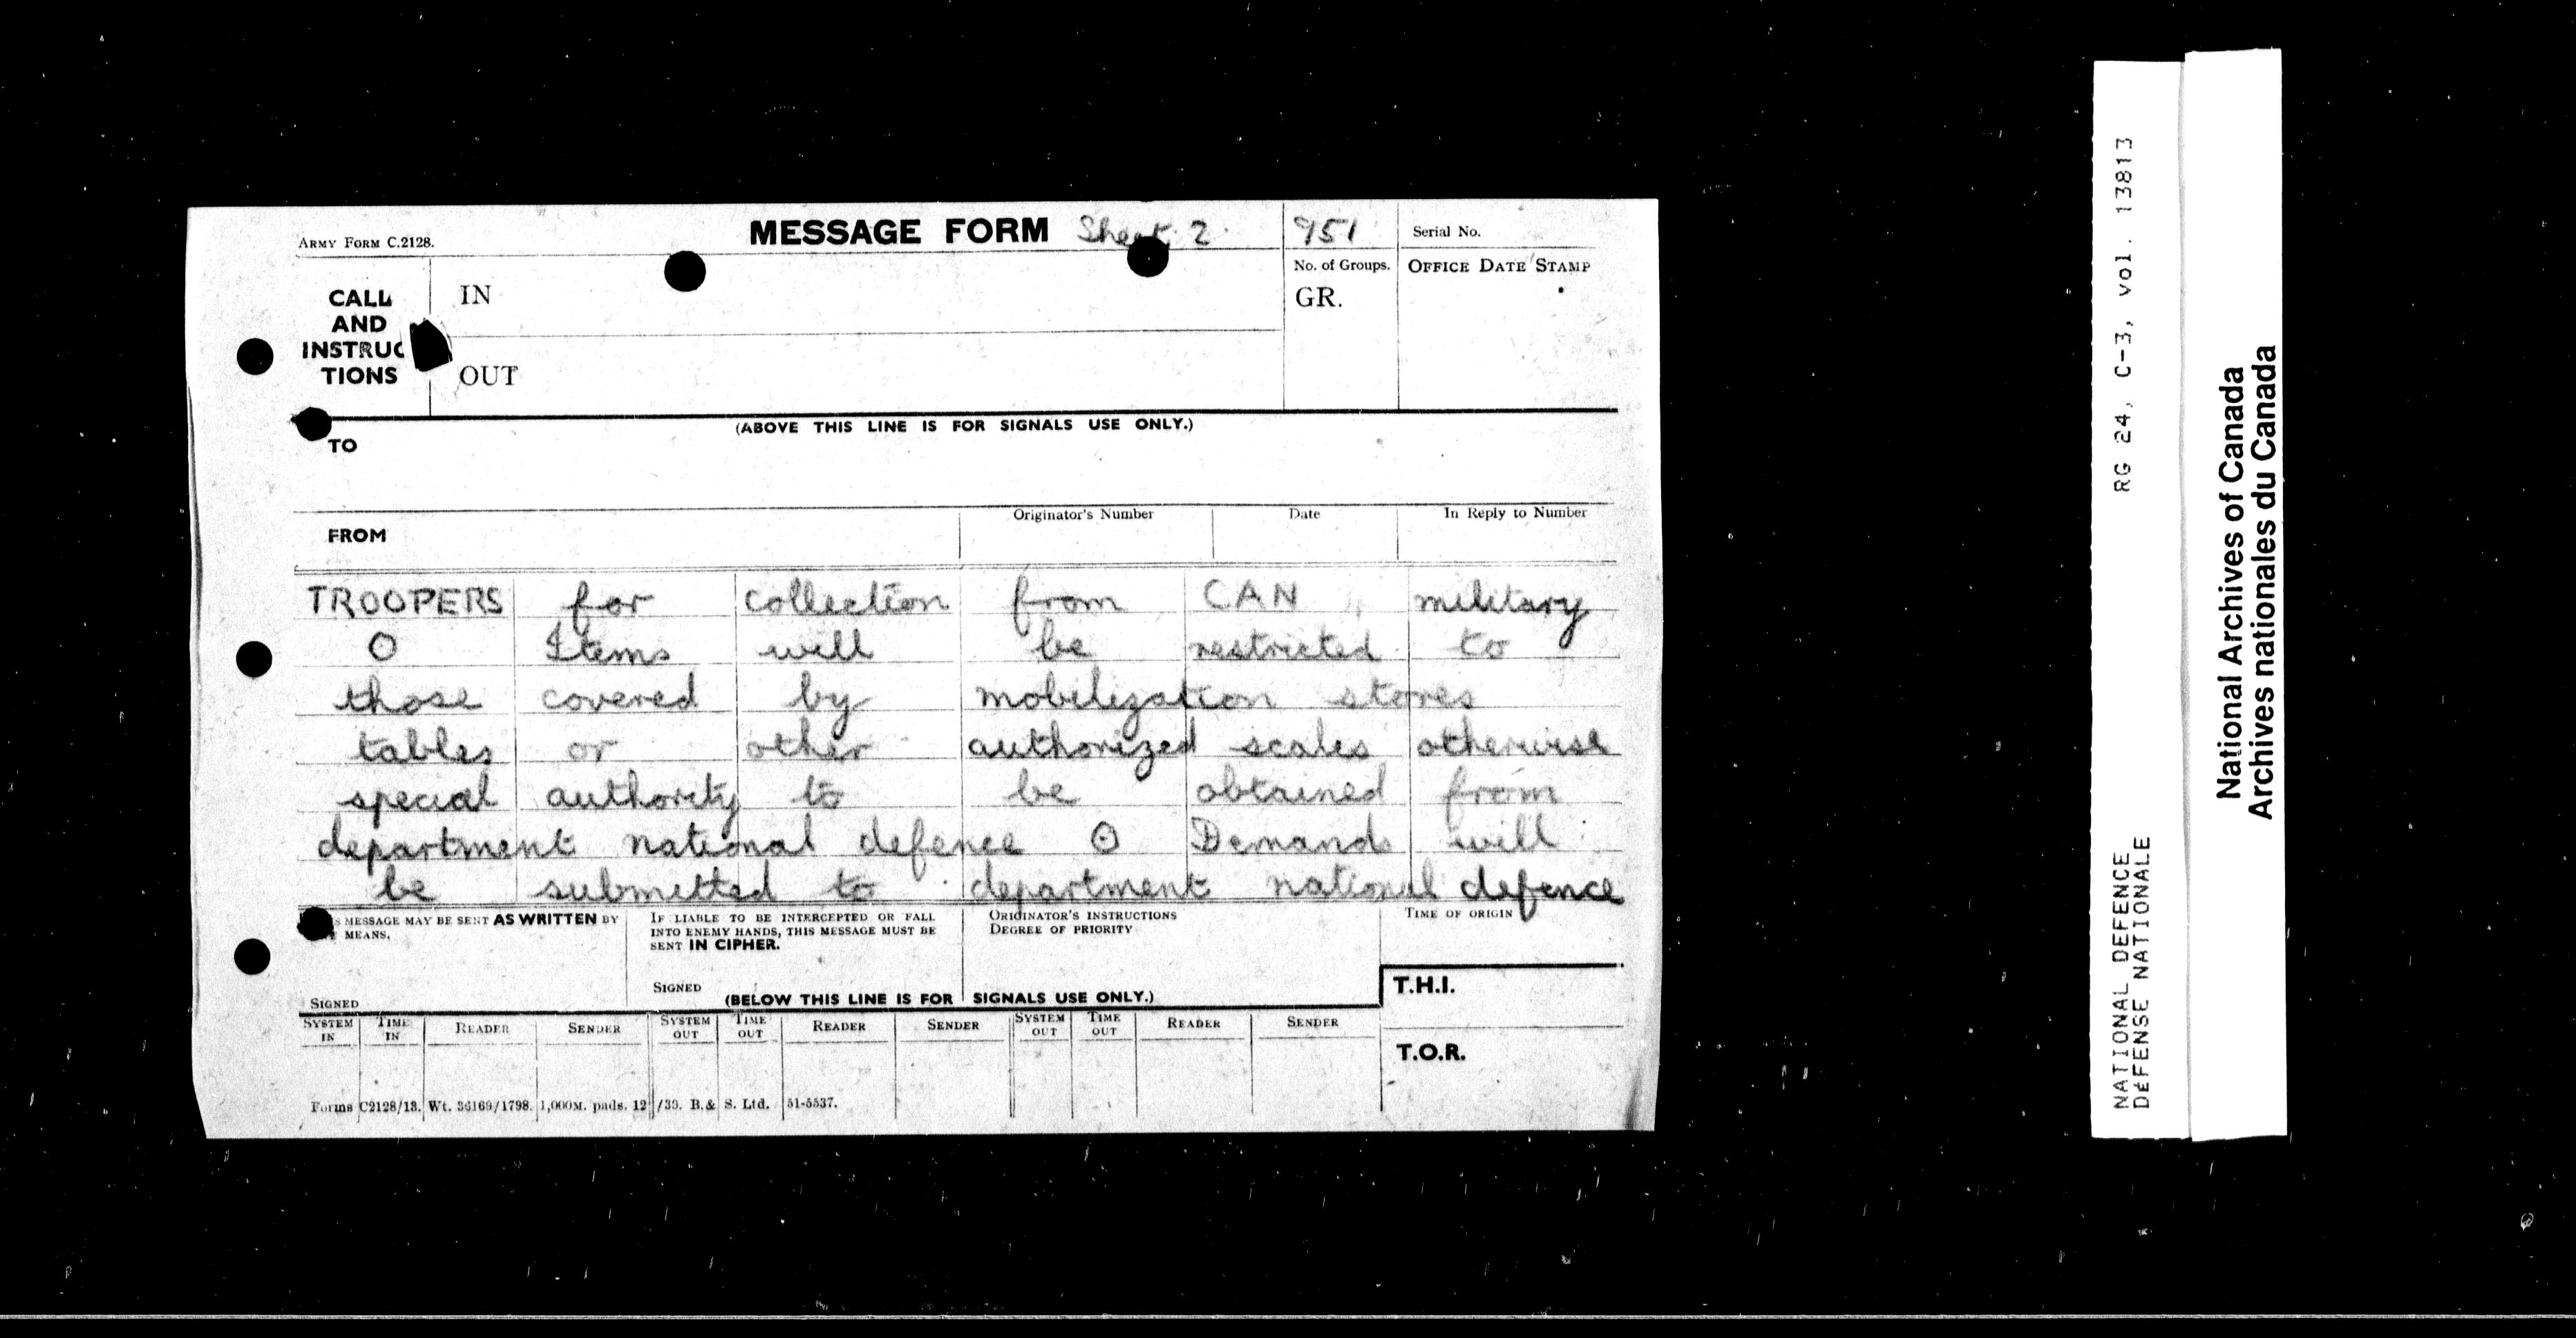 ARMY FORM C.2128. MESSAGE FORM Sheet 2 951 Serial No.
No. of Groups. OFFICE DATE STAMP
CALL AND INSTRUC TIONS
IN
GR.
OUT
(ABOVE THIS LINE IS FOR SIGNALS USE ONLY.)
TO
Originator's Number Date In Reply to Number
FROM
TROOPERS for collection from CAN military
O Items will be restricted to
those covered by mobilization stores
tables or other authorized scales otherwise
special authority to be obtained from
department national defence O Demands will
be submitted to department national defence
MESSAGE MAY BE SENT AS WRITTEN BY
MEANS.
SIGNED
IF LIABLE TO BE INTERCEPTED OR FALL
INTO ENEMY HANDS, THIS MESSAGE MUST BE
SENT IN CIPHER.
SIGNED
ORIGINATOR'S INSTRUCTIONS
DEGREE OF PRIORITY
TIME OF ORIGIN
(BELOW THIS LINE IS FOR SIGNALS USE ONLY.)
T.H.I.
SYSTEM IN TIME IN READER SENDER SYSTEM OUT TIME OUT READER SENDER SYSTEM OUT TIME OUT READER SENDER
T.O.R.
Forms C2128/13. Wt. 36169/1798. 1,000M. pads. 12/39. B.& S. Ltd. 51-5537.
RG 24, C-3, vol. 13813
NATIONAL DEFENCE
DÉFENSE NATIONALE
National Archives of Canada
Archives nationales du Canada